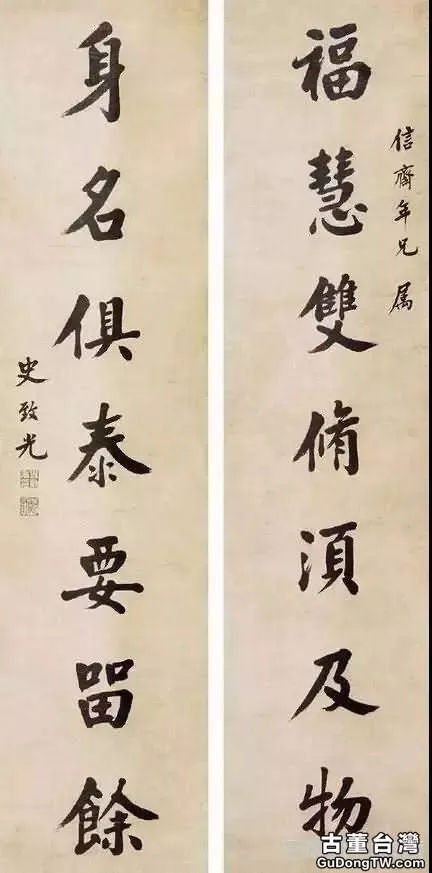 信齋年兄属
福慧雙脩湏及物
身名俱泰要留餘
史致光
古董台灣
GuDongTW.com